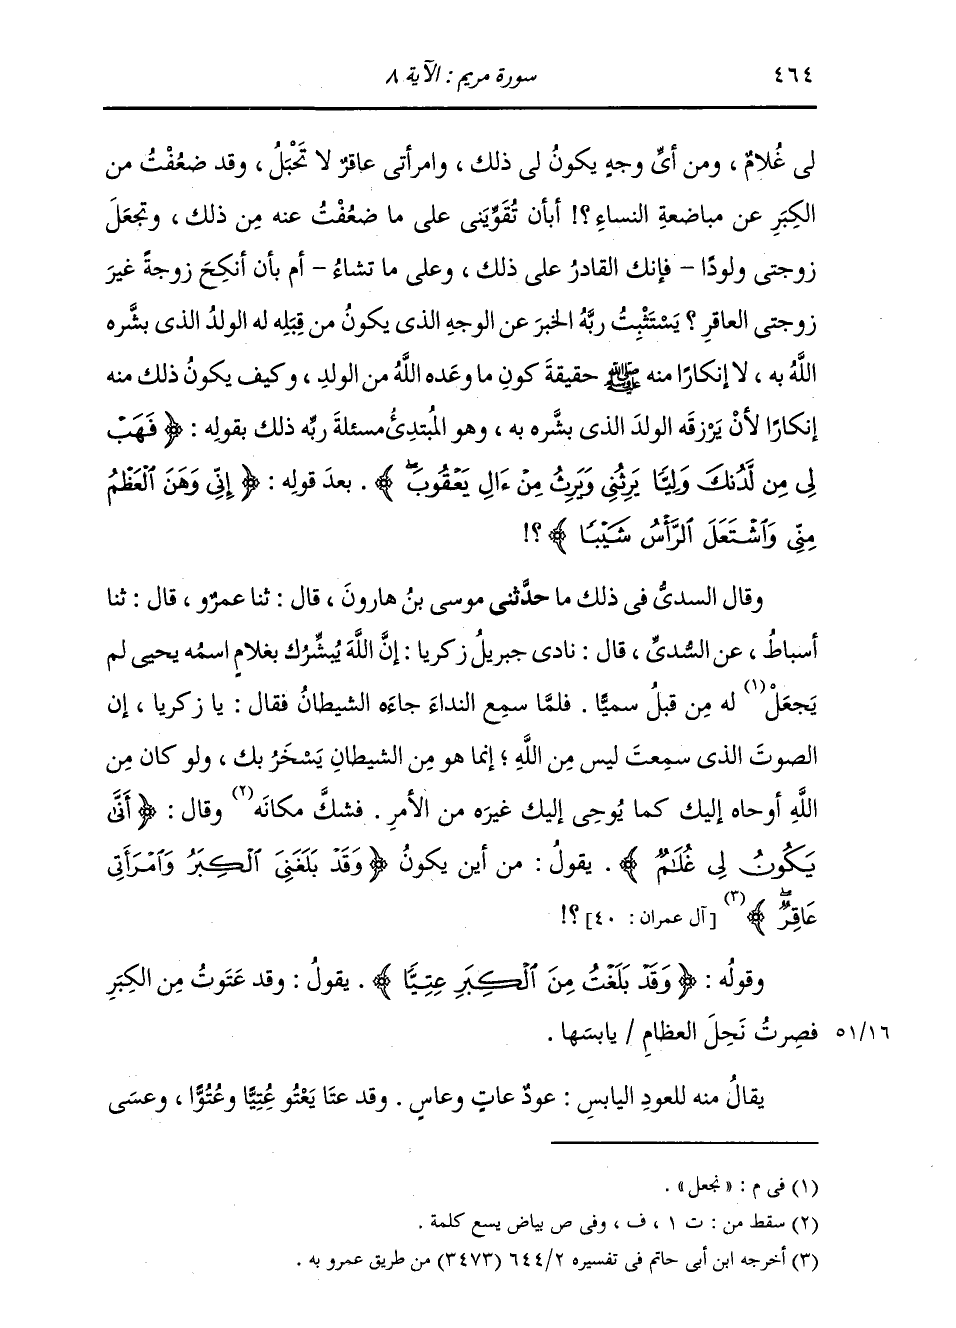 ٤٦٤
سورة مريم : الآية ٨
لى غُلامٌ ، ومن أىِّ وجهٍ يكونُ لى ذلك ، وامرأتى عاقرٌ لا تَحْبَلُ ، وقد ضعُفْتُ من
الكِبَرِ عن مباضعةِ النساءِ ؟! أبأن تُقَوِّيَنى على ما ضعُفْتُ عنه مِن ذلك ، وتجعَلَ
زوجتى ولودًا - فإنك القادرُ على ذلك ، وعلى ما تشاءُ - أم بأن أنكِحَ زوجةً غيرَ
زوجتى العاقرِ ؟ يَسْتَثْبِتُ ربَّهُ الخبرَ عن الوجهِ الذى يكونُ من قِبَلِه له الولدُ الذى بشَّره
اللَّهُ به ، لا إنكارًا منه ﷺ حقيقةَ كونِ ما وعَده اللَّهُ من الولدِ ، وكيف يكونُ ذلك منه
إنكارًا لأنْ يَرْزقَه الولدَ الذى بشَّره به ، وهو المُبتدِئُ مسئلةَ ربِّه ذلك بقولِه : ﴿ فَهَبْ
لِى مِن لَّدُنكَ وَلِيًّا يَرِثُنِى وَيَرِثُ مِنْ ءَالِ يَعْقُوبَۖ ﴾ . بعدَ قولِه : ﴿ إِنِّى وَهَنَ ٱلْعَظْمُ
مِنِّى وَٱشْتَعَلَ ٱلرَّأْسُ شَيْبًا ﴾ ؟!
وقال السدىُّ فى ذلك ما حدَّثنى موسى بنُ هارونَ ، قال : ثنا عمرٌو ، قال : ثنا
أسباطُ ، عن السُّدىِّ ، قال : نادى جبريلُ زكريا : إنَّ اللَّهَ يُبشِّرُك بغلامٍ اسمُه يحيى لم
يَجعَلْ(١) له مِن قبلُ سميًّا . فلمَّا سمِع النداءَ جاءَه الشيطانُ فقال : يا زكريا ، إن
الصوتَ الذى سمِعتَ ليس مِن اللَّهِ ؛ إنما هو مِن الشيطانِ يَسْخَرُ بك ، ولو كان مِن
اللَّهِ أوحاه إليك كما يُوحِى إليك غيرَه من الأمرِ . فشكَّ مكانَه(٢) وقال : ﴿ أَنَّىٰ
يَكُونُ لِى غُلَـٰمٌ ﴾ . يقولُ : من أين يكونُ ﴿ وَقَدْ بَلَغَنِىَ ٱلْكِبَرُ وَٱمْرَأَتِى
عَاقِرٌۖ ﴾(٣) [آل عمران : ٤٠] ؟!
وقولُه : ﴿ وَقَدْ بَلَغْتُ مِنَ ٱلْكِبَرِ عِتِيًّا ﴾ . يقولُ : وقد عَتَوتُ مِن الكِبَرِ
فصِرتُ نَحِلَ العظامِ / يابسَها .
٥١/١٦
يقالُ منه للعودِ اليابسِ : عودٌ عاتٍ وعاسٍ . وقد عتَا يَعْتُو عُتِيًّا وعُتُوًّا ، وعسَى
(١) فى م : «نجعل» .
(٢) سقط من : ت ١ ، ف ، وفى ص بياض يسع كلمة .
(٣) أخرجه ابن أبى حاتم فى تفسيره ٦٤٤/٢ (٣٤٧٣) من طريق عمرو به .